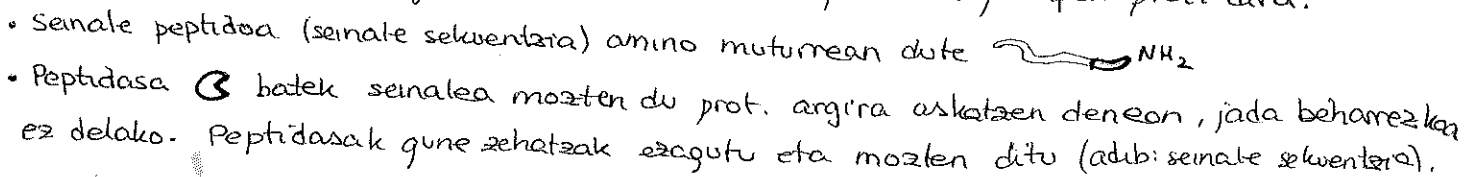 • Seinale peptidoa (seinale sekuentzia) amino muturrean dute NH₂
• Peptidasa batek seinalea mozten du prot. argira askatzen denean, jada beharrezkoa
ez delako. Peptidasak gune zehatzak ezagutu eta mozten ditu (adib: seinale sekuentzia).